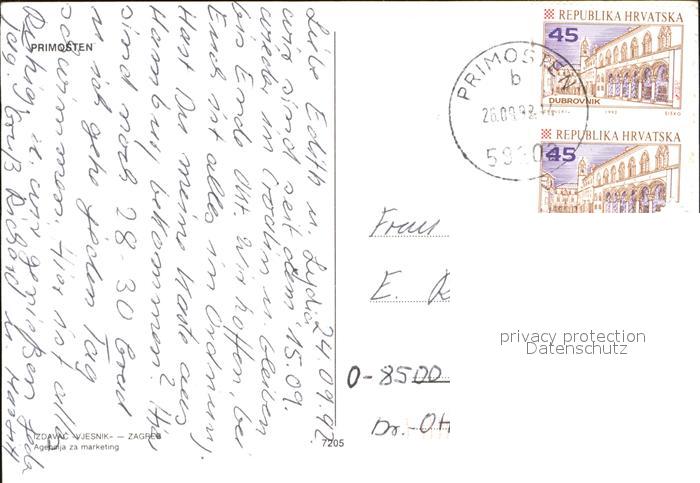 PRIMOŠTEN
24.09.92
Liebe Edith u. Lydia,
wir sind seit dem 15.09.
wieder in Croatien u. bleiben
bis Ende Okt. Wir hoffen, bei
Euch ist alles in Ordnung.
Hast Du meine Karte aus
Hamburg bekommen? Hier
sind noch 28-30 Grad
u. ich gehe jeden Tag
schwimmen. Hier ist alles
ruhig u. wir genießen jeden
Tag. Gruß Richard u.
IZDAVAČ «VJESNIK» — ZAGREB
Agencija za marketing
7205
REPUBLIKA HRVATSKA
45
DUBROVNIK
1992
REPUBLIKA HRVATSKA
45
PRIMOŠTEN
b
Frau
E.
O-8500
Dr.-
privacy protection
Datenschutz